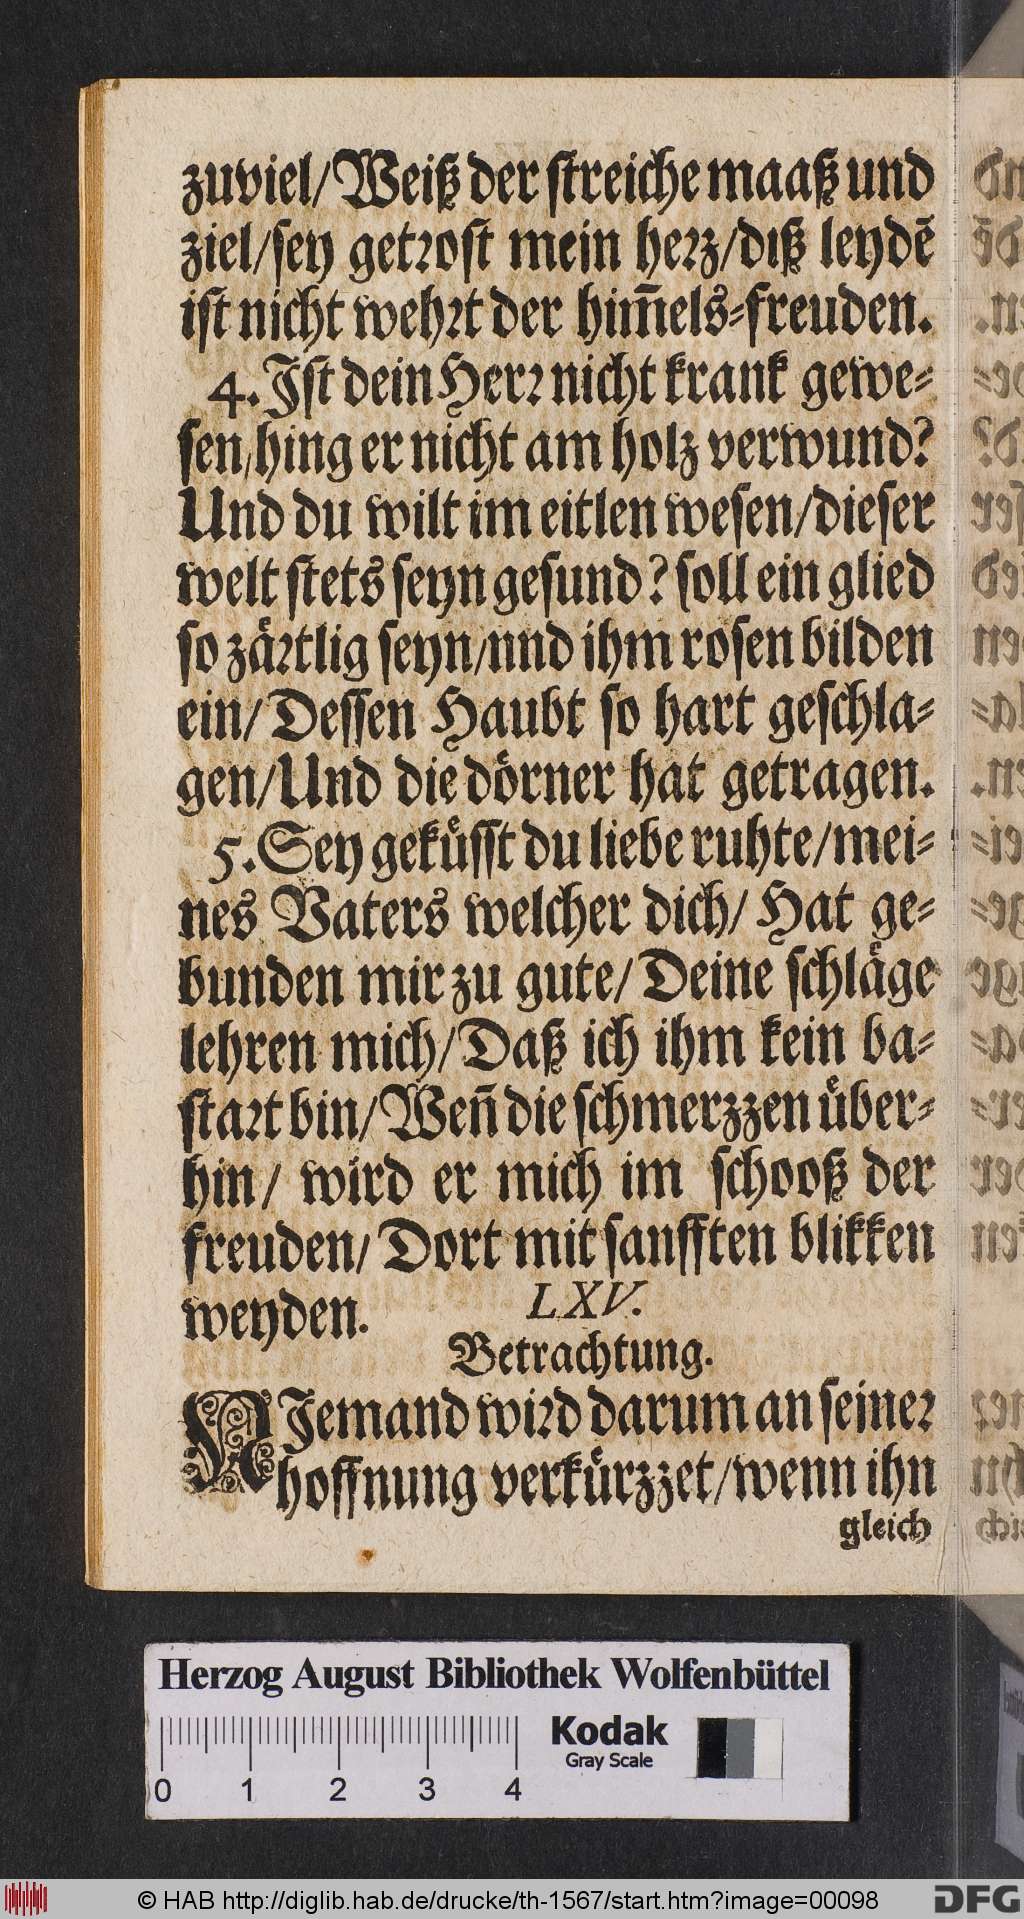 zuviel/Weiß der streiche maaß und
ziel/sey getrost mein herz/diß leydē
ist nicht wehrt der him̄els=freuden.
4. Ist dein Herr nicht krank gewe=
sen/hing er nicht am holz verwund?
Und du wilt im eitlen wesen/dieser
welt stets seyn gesund? soll ein glied
so zaͤrtlig seyn/nnd ihm rosen bilden
ein/Dessen Haubt so hart geschla=
gen/Und die doͤrner hat getragen.
5. Sey gekuͤsst du liebe ruhte/mei=
nes Vaters welcher dich/ Hat ge=
bunden mir zu gute/Deine schlaͤge
lehren mich/Daß ich ihm kein ba=
start bin/Wen̄ die schmerzzen uͤber=
hin/ wird er mich im schooß der
freuden/Dort mit sanfften blikken
weyden.
LXV.
Betrachtung.
NIemand wird darum an seiner
hoffnung verkuͤrzzet/wenn ihn
gleich
Herzog August Bibliothek Wolfenbüttel
Kodak
Gray Scale
0 1 2 3 4
© HAB http://diglib.hab.de/drucke/th-1567/start.htm?image=00098
DFG